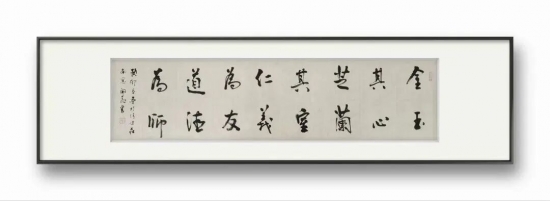 金玉
其心
芝蘭
其室
仁義
為友
道德
為師